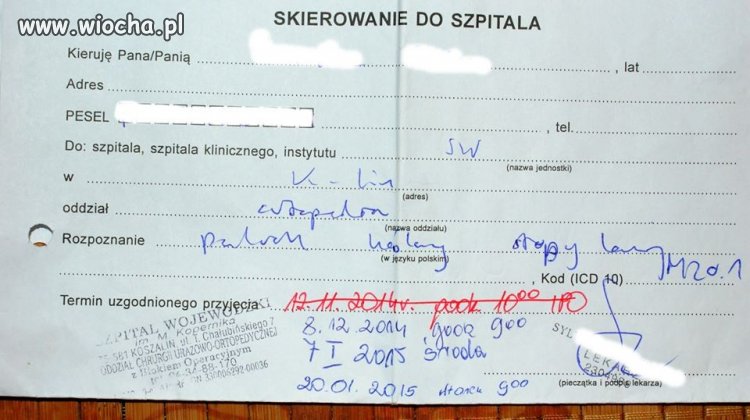 www.wiocha.pl
SKIEROWANIE DO SZPITALA
Kieruję Pana/Panią , lat
Adres
PESEL , tel.
Do: szpitala, szpitala klinicznego, instytutu SW
(nazwa jednostki)
w K-lin
(adres)
oddział ortopedia
(nazwa oddziału)
Rozpoznanie paluch stopy lewej M20.1
(w języku polskim)
, Kod (ICD 10)
Termin uzgodnionego przyjęcia 12.11.2014r. godz 10 00
8.12.2014 godz 9 00
7 I 2015 środa
20.01.2015 wtorek 9 00
SZPITAL WOJEWÓDZKI
im. M. Kopernika
75-581 KOSZALIN, ul. T. Chałubińskiego 7
ODDZIAŁ CHIRURGII URAZOWO-ORTOPEDYCZNEJ
z Blokiem Operacyjnym
SYL
LEKARZ
(pieczątka i podpis lekarza)